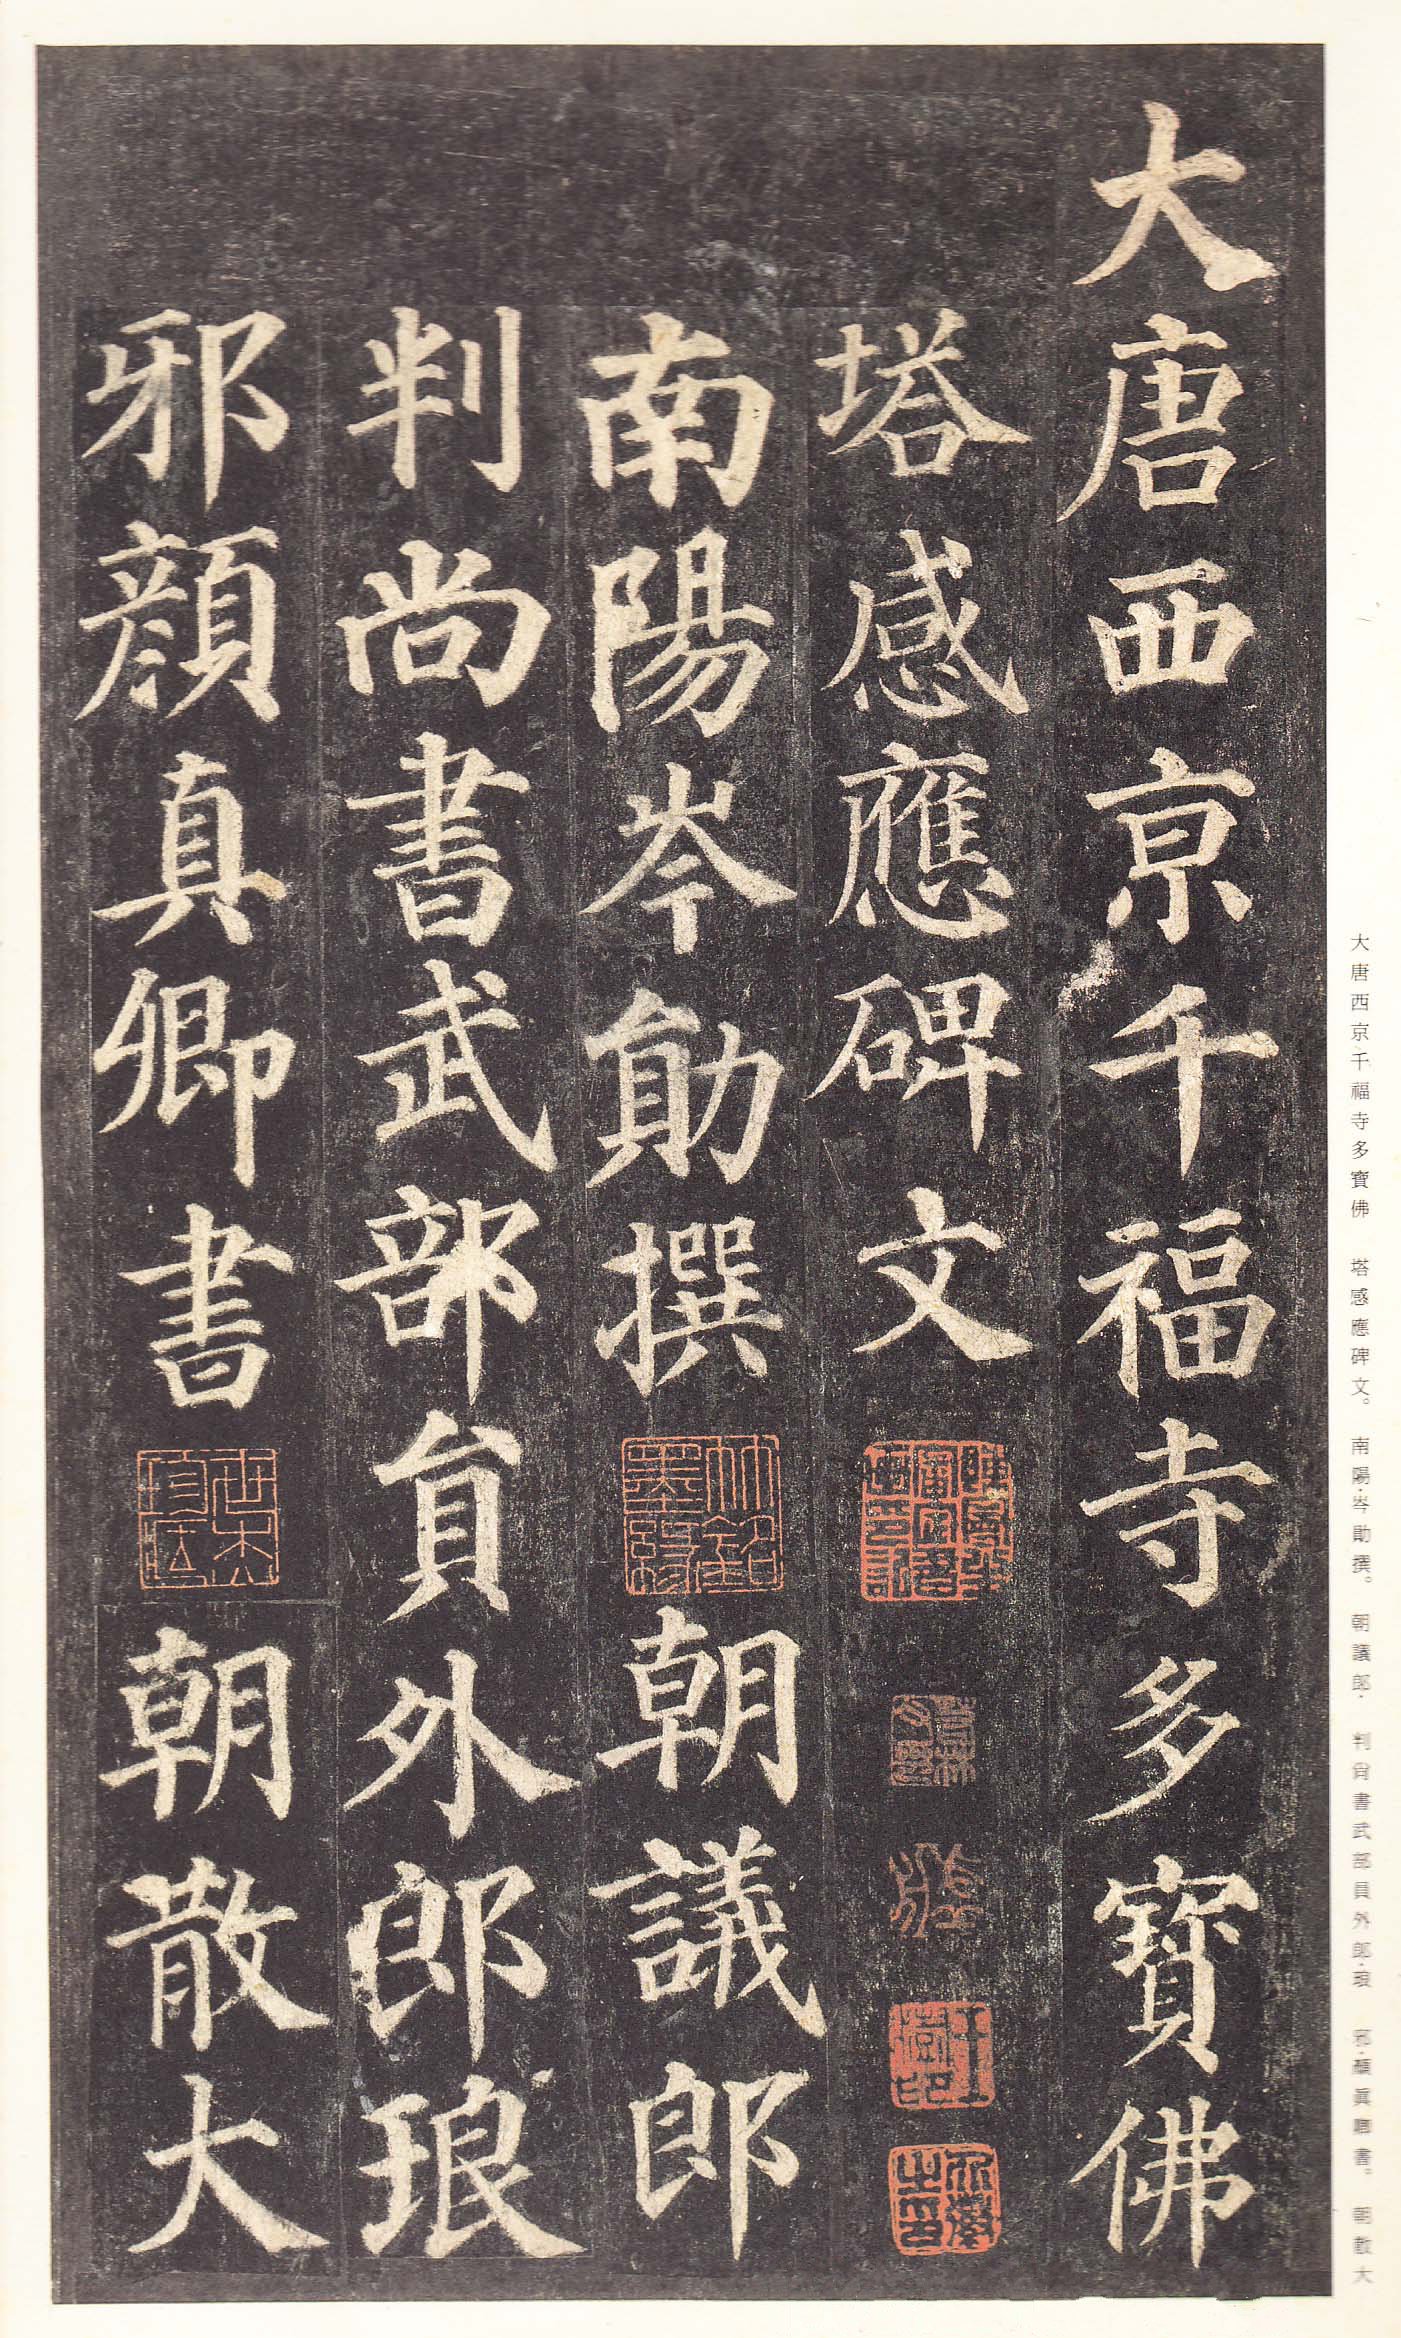 大唐西京千福寺多寶佛
塔感應碑文
南陽岑勛撰 朝議郎
判尚書武部員外郎琅
邪顏真卿書 朝散大
大唐西京千福寺多寶佛 塔感應碑文。 南陽·岑勛撰。 朝議郎· 判尙書武部員外郎·琅 邪·顏眞卿書。 朝散大